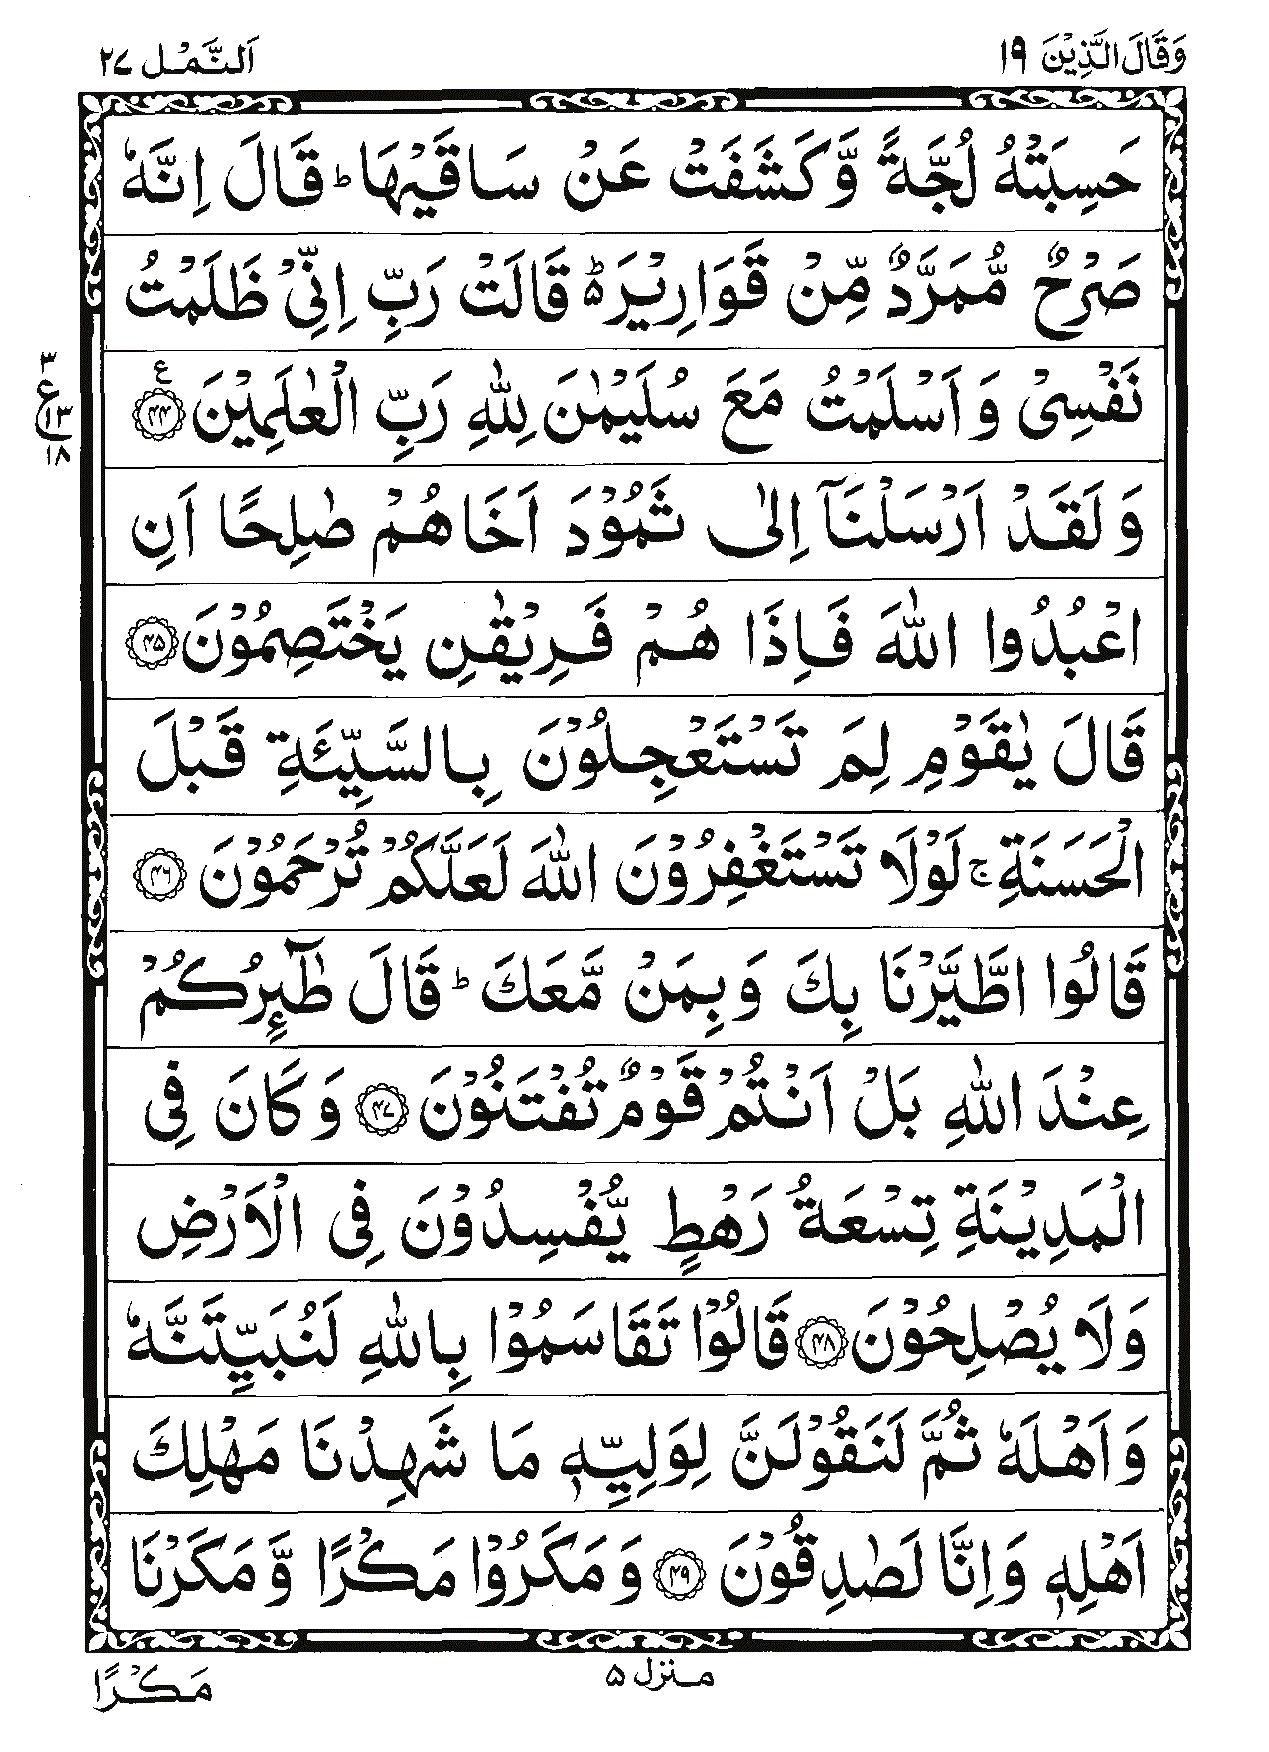 وَقَالَ الَّذِيْنَ ١٩
اَلنَّمْل ٢٧
حَسِبَتْهُ لُجَّةً وَّكَشَفَتْ عَنْ سَاقَيْهَا ؕ قَالَ اِنَّهٗ
صَرْحٌ مُّمَرَّدٌ مِّنْ قَوَارِيْرَ ۬ؕ قَالَتْ رَبِّ اِنِّيْ ظَلَمْتُ
نَفْسِىْ وَاَسْلَمْتُ مَعَ سُلَيْمٰنَ لِلّٰهِ رَبِّ الْعٰلَمِيْنَ ﴿۴۴﴾ ع
٣
ع
١٣
١٨
وَلَقَدْ اَرْسَلْنَاۤ اِلٰى ثَمُوْدَ اَخَاهُمْ صٰلِحًا اَنِ
اعْبُدُوا اللّٰهَ فَاِذَا هُمْ فَرِيْقٰنِ يَخْتَصِمُوْنَ ﴿۴۵﴾
قَالَ يٰقَوْمِ لِمَ تَسْتَعْجِلُوْنَ بِالسَّيِّئَةِ قَبْلَ
الْحَسَنَةِ ۚ لَوْلَا تَسْتَغْفِرُوْنَ اللّٰهَ لَعَلَّكُمْ تُرْحَمُوْنَ ﴿۴۶﴾
قَالُوا اطَّيَّرْنَا بِكَ وَبِمَنْ مَّعَكَ ؕ قَالَ طٰٓئِرُكُمْ
عِنْدَ اللّٰهِ بَلْ اَنْتُمْ قَوْمٌ تُفْتَنُوْنَ ﴿۴۷﴾ وَكَانَ فِى
الْمَدِيْنَةِ تِسْعَةُ رَهْطٍ يُّفْسِدُوْنَ فِى الْاَرْضِ
وَلَا يُصْلِحُوْنَ ﴿۴۸﴾ قَالُوْا تَقَاسَمُوْا بِاللّٰهِ لَنُبَيِّتَنَّهٗ
وَاَهْلَهٗ ثُمَّ لَنَقُوْلَنَّ لِوَلِيِّهٖ مَا شَهِدْنَا مَهْلِكَ
اَهْلِهٖ وَاِنَّا لَصٰدِقُوْنَ ﴿۴۹﴾ وَمَكَرُوْا مَكْرًا وَّمَكَرْنَا
منزل ۵
مَكْرًا